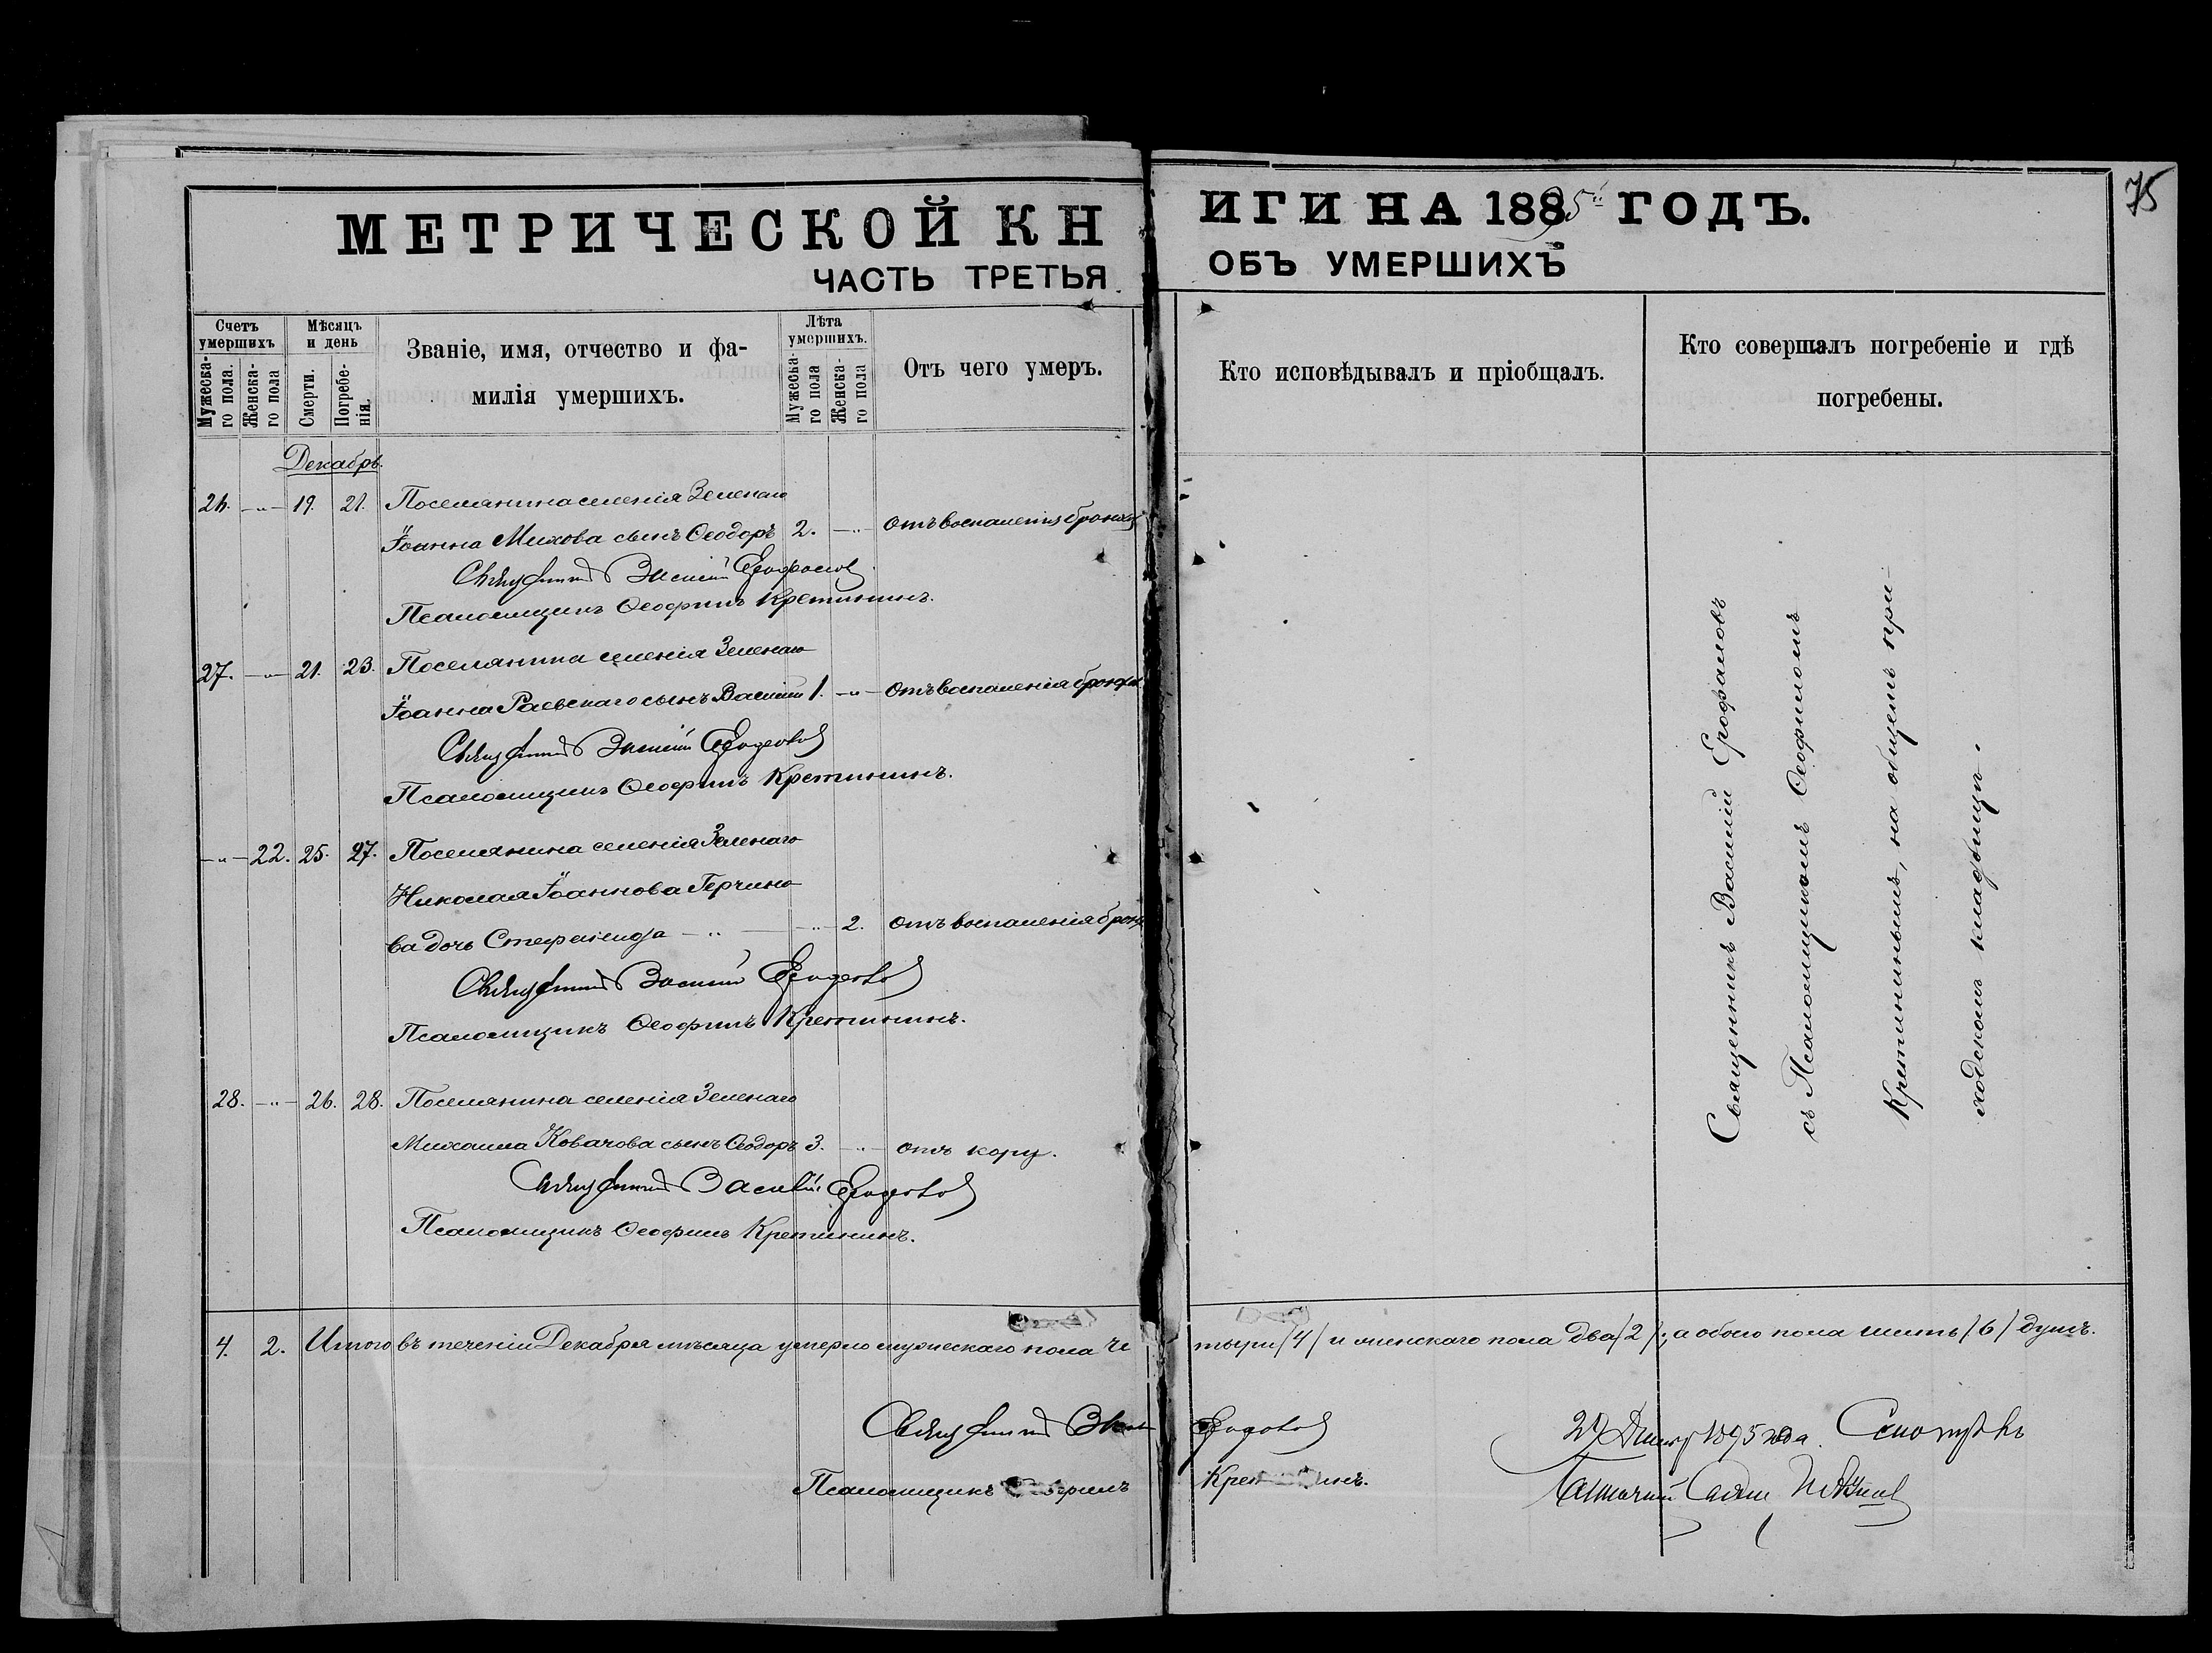 МЕТРИЧЕСКОЙ КНИГИ НА 1895й ГОДЪ.
75
ЧАСТЬ ТРЕТЬЯ ОБЪ УМЕРШИХЪ
Счетъ умершихъ
Мужеска-го пола.
Женска-го пола
Мѣсяцъ и день
Смерти.
Погребе-нія.
Званіе, имя, отчество и фа-
милія умершихъ.
Лѣта умершихъ.
Мужеска-го пола
Женска-го пола
Отъ чего умеръ.
Кто исповѣдывалъ и пріобщалъ.
Кто совершалъ погребеніе и гдѣ
погребены.
Декабрь.
26. -"- 19. 21. Поселянина селенія Зеленаго
Іоанна Михова сынъ Ѳеодоръ 2. -"- отъ воспаленія бронхъ
Священникъ Василій
Псаломщикъ Ѳеофилъ Кретининъ.
27. -"- 21. 23. Поселянина селенія Зеленаго
Іоанна Раевскаго сынъ Василій 1. -"- отъ воспаленія бронхъ
Священникъ Василій
Псаломщикъ Ѳеофилъ Кретининъ.
-"- 22. 25. 27. Поселянина селенія Зеленаго
Николая Іоаннова Герчино-
ва дочь Стефанида -"- -"- 2. отъ воспаленія бронх
Священникъ Василій
Псаломщикъ Ѳеофилъ Кретининъ.
28. -"- 26. 28. Поселянина селенія Зеленаго
Михаила Ковачова сынъ Ѳеодоръ 3. -"- отъ кору.
Священникъ Василій
Псаломщикъ Ѳеофилъ Кретининъ.
Священникъ Василій
съ Псаломщикомъ Ѳеофиломъ
Кретининымъ, на общемъ при-
ходскомъ кладбищѣ.
4. 2. Итого въ теченіи Декабря мѣсяца умерло мужескаго пола четыри /4/ и женскаго пола два /2/, а обоего пола шесть /6/ душъ.
Священникъ
Псаломщикъ Кретининъ.
1895 года.